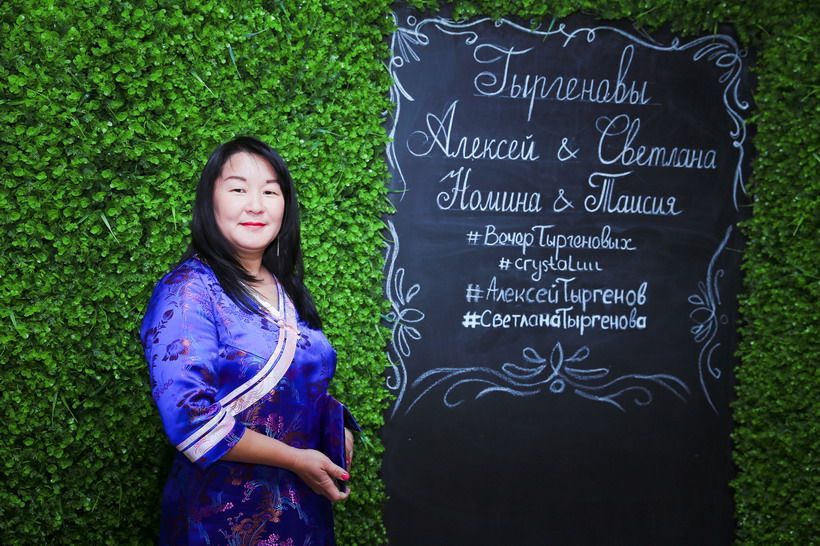 Тыргеновы
Алексей & Светлана
Номина & Таисия
#ВечерТыргеновых
#crystaLuu
#АлексейТыргенов
#СветланаТыргенова